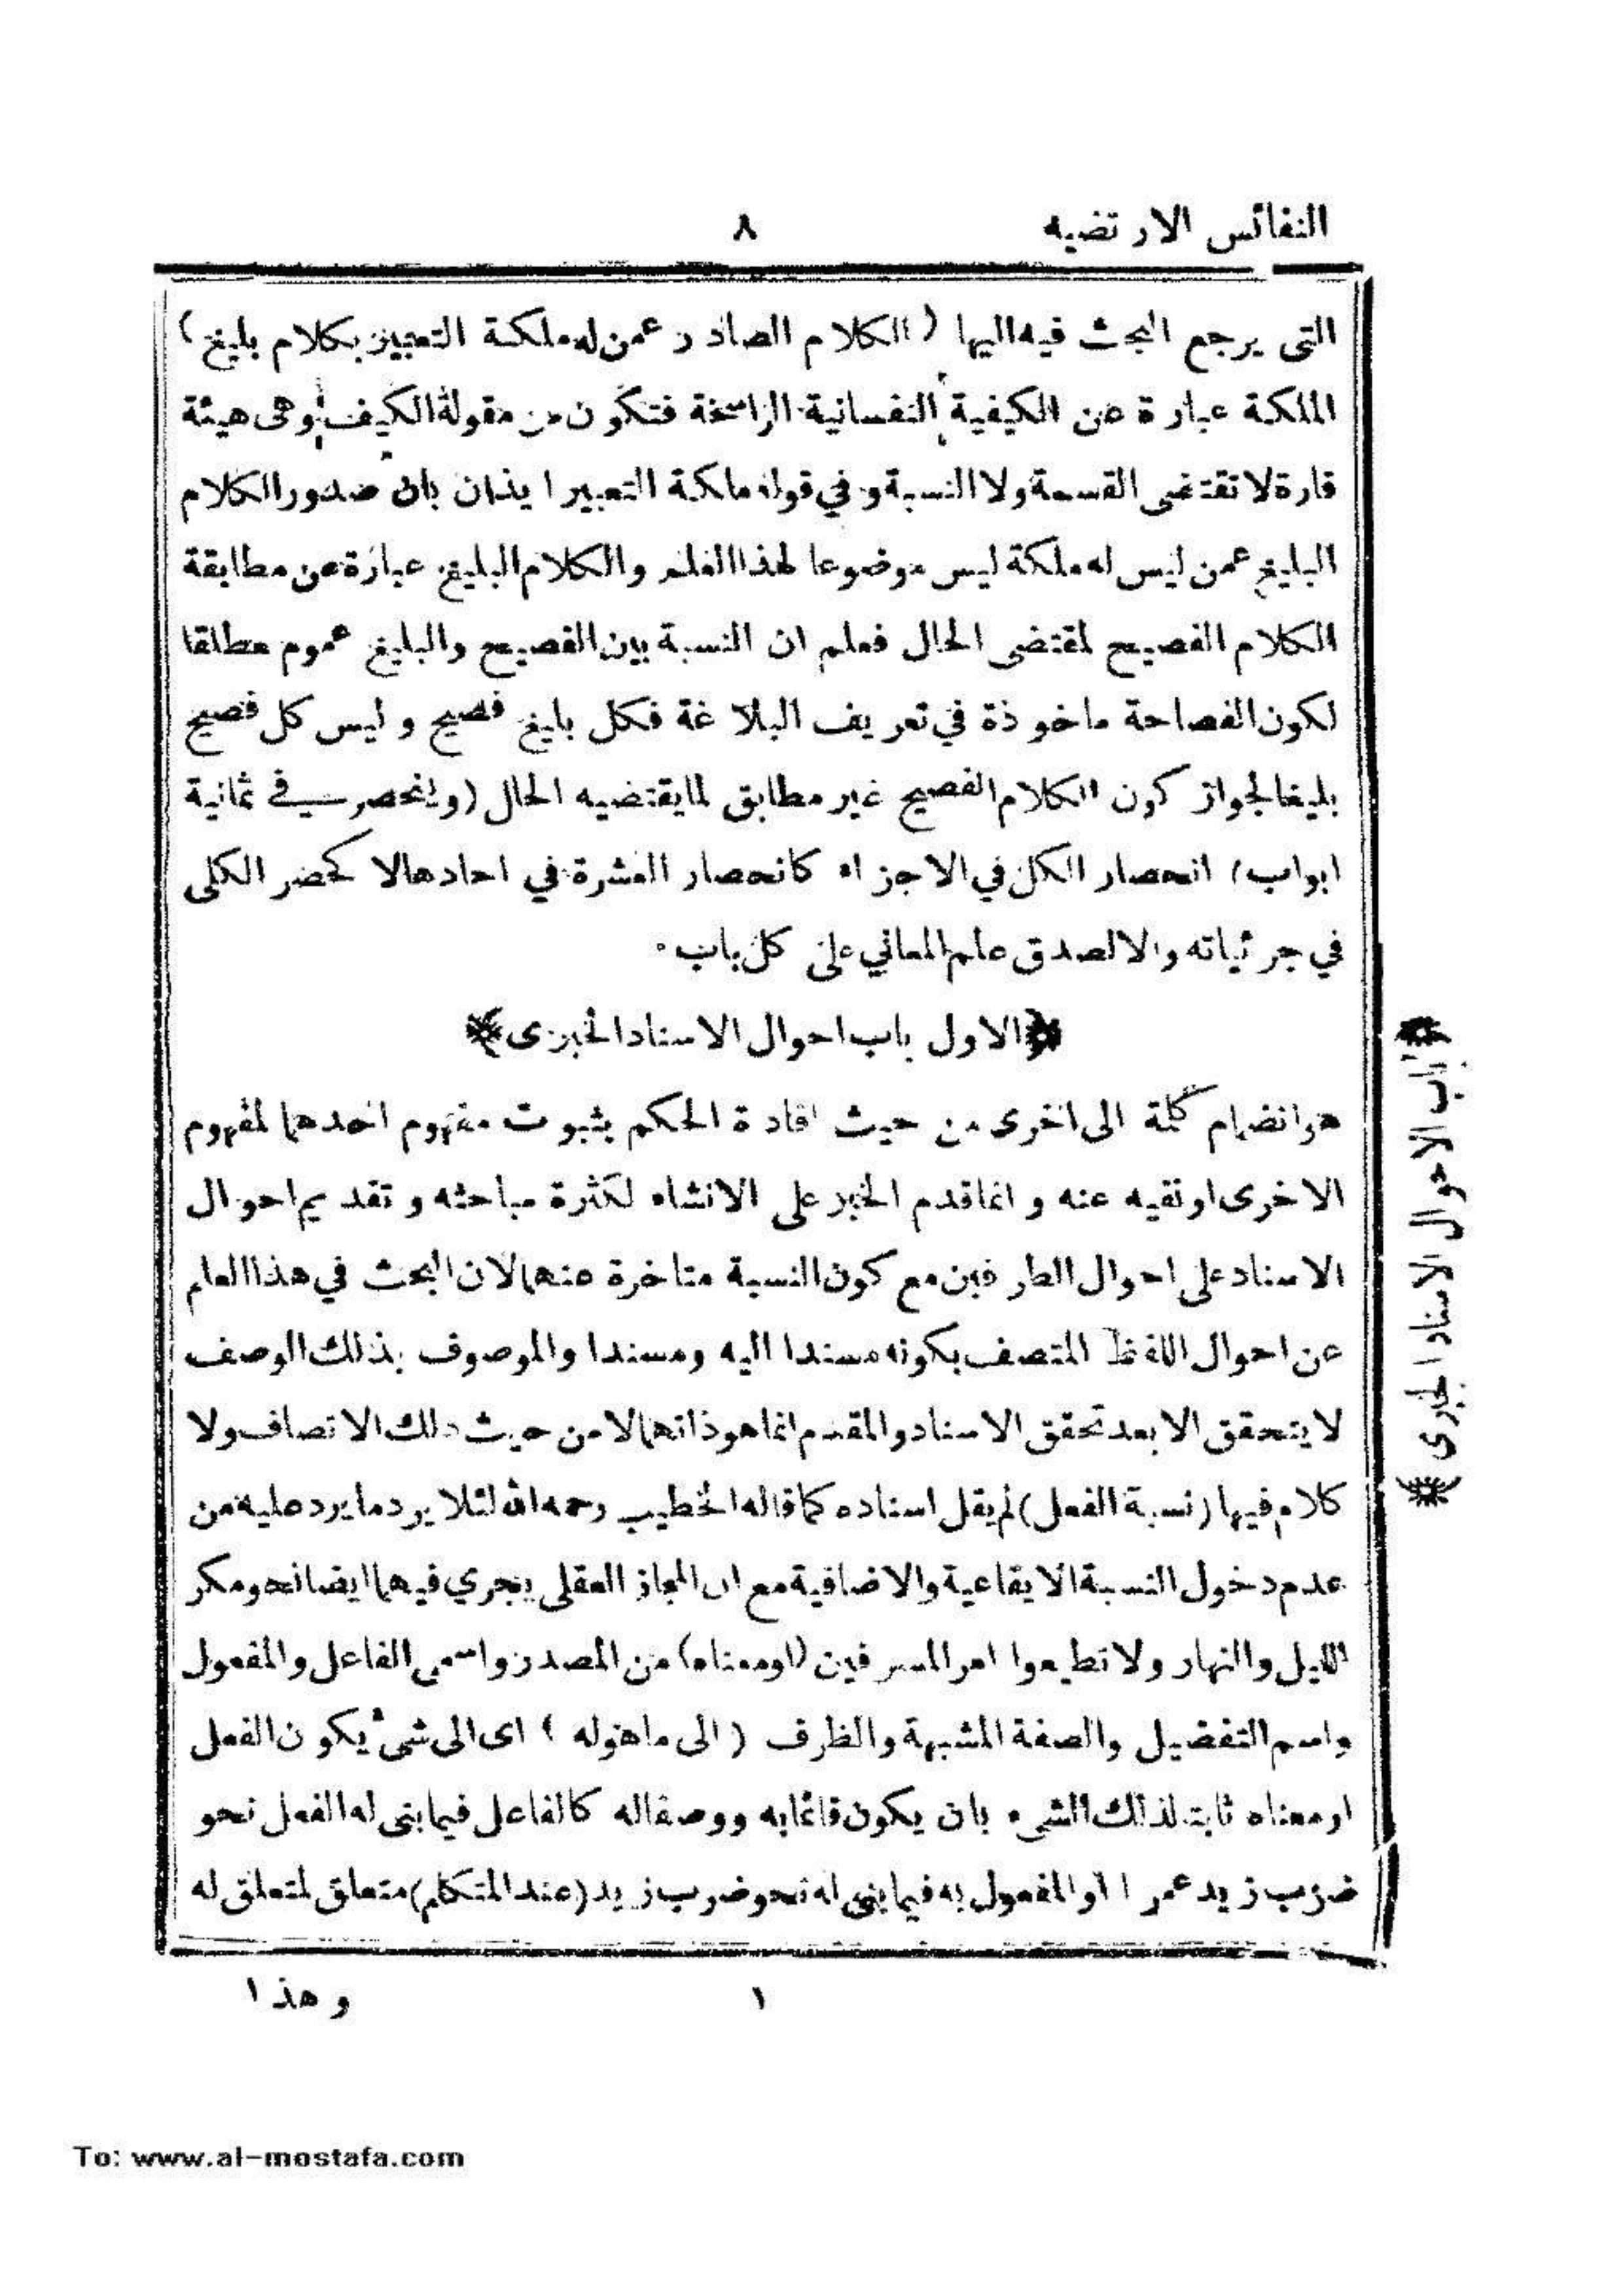 النفائس الارتضيه
٨
التى يرجع البحث فيه اليها (الكلام الصادر عمن له ملكة التعبير بكلام بليغ)
الملكة عبارة عن الكيفية النفسانية الراسخة فتكون من مقولة الكيف وهى هيئة
قارة لا تقتضى القسمة ولا النسبة و في قوله ملكة التعبير ايذان بان صدور الكلام
البليغ عمن ليس له ملكة ليس موضوعا لهذا العلم والكلام البليغ عبارة عن مطابقة
الكلام الفصيح لمقتضى الحال فعلم ان النسبة بين الفصيح والبليغ عموم مطلقا
لكون الفصاحة ماخوذة في تعريف البلاغة فكل بليغ فصيح و ليس كل فصيح
بليغا لجواز كون الكلام الفصيح غير مطابق لما يقتضيه الحال (وانحصر في ثمانية
ابواب) انحصار الكل في الاجزاء كانحصار العشرة في احادها لا كحصر الكلى
في جرئياته والا لصدق علم المعاني على كل باب ۰
﴿الاول باب احوال الاسناد الخبرى﴾
هو انضمام كلمة الى اخرى من حيث افادة الحكم بثبوت مفهوم احدهما لمفهوم
الاخرى او نفيه عنه و انما قدم الخبر على الانشاء لكثرة مباحثه و تقديم احوال
الاسناد على احوال الطرفين مع كون النسبة متاخرة عنهما لان البحث في هذا العلم
عن احوال اللفظ المتصف بكونه مسندا اليه ومسندا والموصوف بذلك الوصف
لا يتحقق الا بعد تحقق الاسناد والمقدم انما هو ذاتهما لا من حيث ذلك الاتصاف ولا
كلام فيها (نسبة الفعل) لم يقل اسناده كما قاله الخطيب رحمه الله لئلا يرد ما يرد عليه من
عدم دخول النسبة الايقاعية والاضافية مع ان المجاز العقلى يجري فيهما ايضا نحو مكر
الليل والنهار ولا تطيعوا امر المسرفين (او معناه) من المصدر واسمى الفاعل والمفعول
واسم التفضيل والصفة المشبهة والظرف (الى ما هو له) اى الى شئ يكون الفعل
او معناه ثابت لذلك الشىء بان يكون قائما به ووصفا له كالفاعل فيما بنى له الفعل نحو
ضرب زيد عمرا او المفعول به فيما بنى له نحو ضرب زيد (عند المتكلم) متعلق لمتعلق له
﴿باب الاحوال الاسناد الخبرى﴾
١
وهذا
To: www.al-mostafa.com